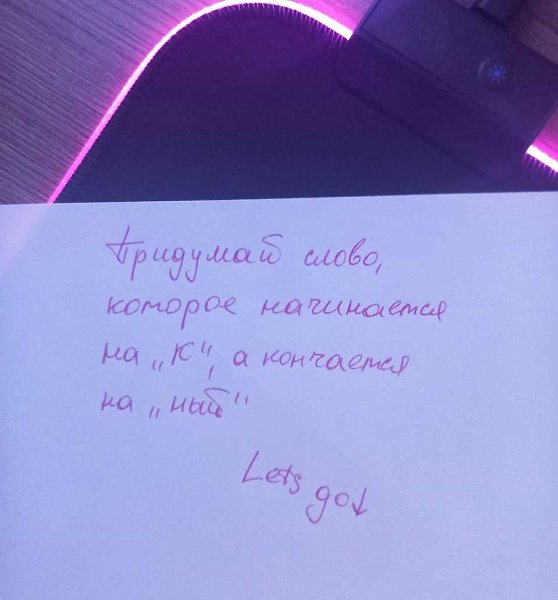 Придумай слово,
которое начинается
на „К", а кончается
на „ный"
Lets
go↓